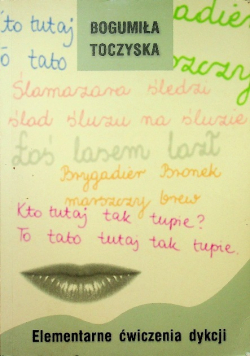 BOGUMIŁA
TOCZYSKA
Kto tutaj
To tato
Ślamazara śledzi
ślad śluzu na śluzie
Łoś lasem lazł
Brygadier Bronek
marszczy brew
Kto tutaj tak tupie?
To tato tutaj tak tupie.
Elementarne ćwiczenia dykcji